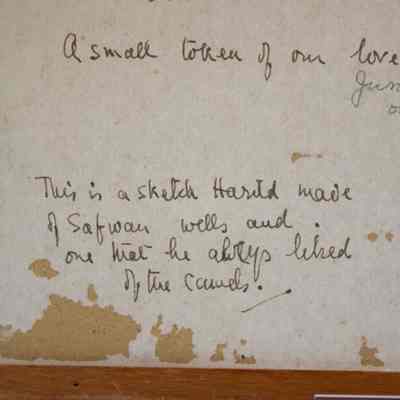 A small token of our love
This is a sketch Harild made
of Safwan wells and .
one that he always liked
of the camels.